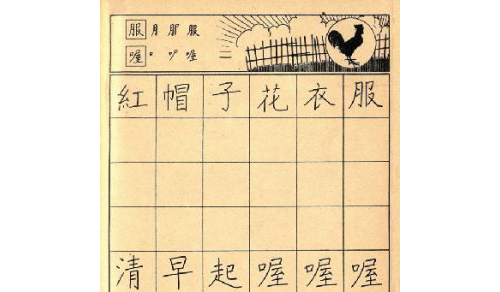 服 月 服
喔 口 喔
二
紅帽子花衣服
清早起喔喔喔